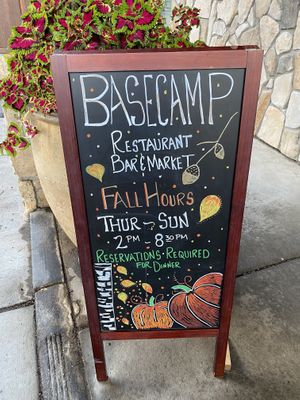 BASECAMP
RESTAURANT
BAR & MARKET
FALL HOURS
THUR - SUN
2 PM - 8:30 PM
RESERVATIONS REQUIRED
FOR DINNER